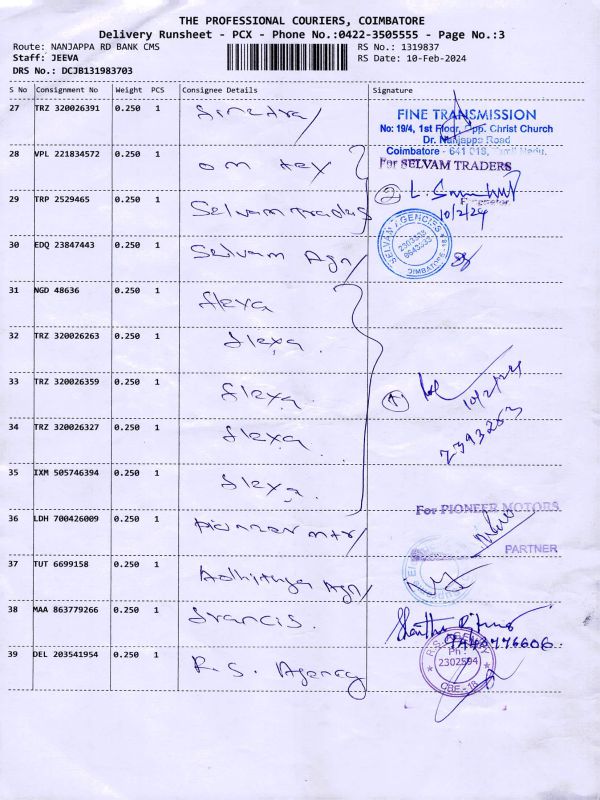 THE PROFESSIONAL COURIERS, COIMBATORE
Delivery Runsheet - PCX - Phone No.:0422-3505555 - Page No.:3
Route: NANJAPPA RD BANK CMS
RS No.: 1319837
Staff: JEEVA
RS Date: 10-Feb-2024
DRS No.: DCJB131983703
S No Consignment No Weight PCS Consignee Details Signature
27 TRZ 320026391 0.250 1
FINE TRANSMISSION
No: 19/4, 1st Floor, Opp. Christ Church
Dr. Nanjappa Road
Coimbatore - 641 018, Tamil Nadu.
28 VPL 221834572 0.250 1 om tex
For SELVAM TRADERS
2
29 TRP 2529465 0.250 1 Selvam Traders
10/2/24
30 EDQ 23847443 0.250 1 Selvam Agn/
SELVAM AGENCISS
31 NGD 48636 0.250 1 Slexa
32 TRZ 320026263 0.250 1 Slexa.
33 TRZ 320026359 0.250 1 Slexa.
10/2/24
34 TRZ 320026327 0.250 1 Slexa.
2393263
35 IXM 505746394 0.250 1 Slexa.
For PIONEER MOTORS
36 LDH 700426009 0.250 1 Pioneer mtr/
PARTNER
37 TUT 6699158 0.250 1 Adhithya Agn/
38 MAA 863779266 0.250 1 Francis.
9442776606.
39 DEL 203541954 0.250 1 R.S. Agency
R.S. AGENCY
Ph :
2302594
CBE - 18